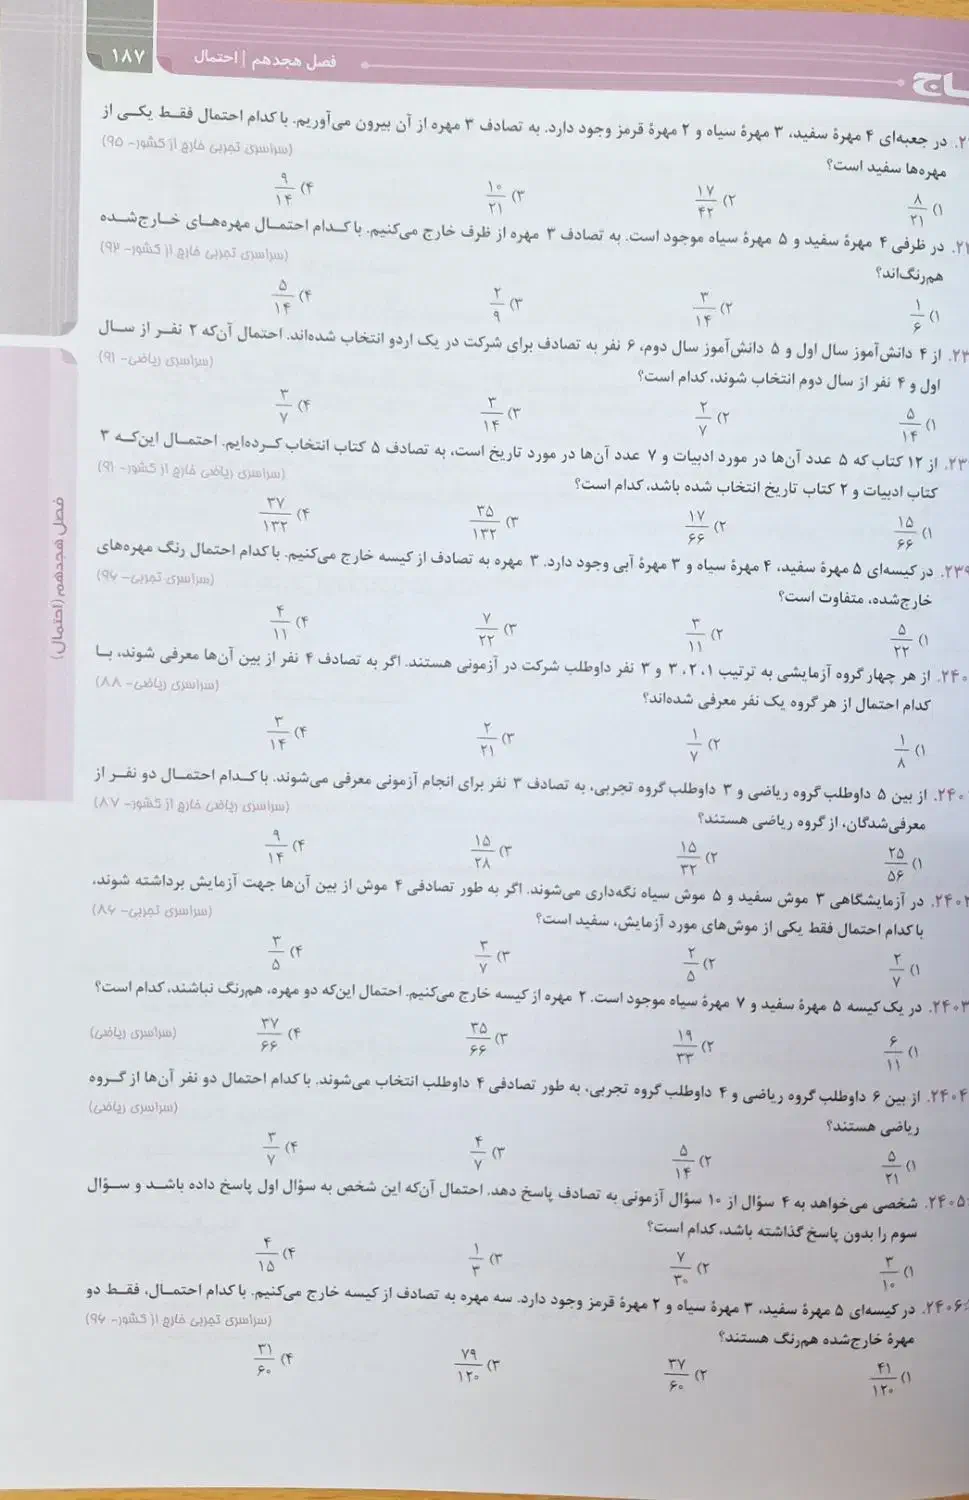 فصل هجدهم | احتمال
۱۸۷
در جعبه‌ای ۴ مهرهٔ سفید، ۳ مهرهٔ سیاه و ۲ مهرهٔ قرمز وجود دارد. به تصادف ۳ مهره از آن بیرون می‌آوریم. با کدام احتمال فقط یکی از
مهره‌ها سفید است؟ (سراسری تجربی خارج از کشور- ۹۵)
۱) ۸/۲۱ ۲) ۱۷/۴۲ ۳) ۱۰/۲۱ ۴) ۹/۱۴
در ظرفی ۴ مهرهٔ سفید و ۵ مهرهٔ سیاه موجود است. به تصادف ۳ مهره از ظرف خارج می‌کنیم. با کدام احتمال مهره‌های خارج‌شده
هم‌رنگ‌اند؟ (سراسری تجربی خارج از کشور- ۹۲)
۱) ۱/۶ ۲) ۳/۱۴ ۳) ۲/۹ ۴) ۵/۱۴
از ۴ دانش‌آموز سال اول و ۵ دانش‌آموز سال دوم، ۶ نفر به تصادف برای شرکت در یک اردو انتخاب شده‌اند. احتمال آن‌که ۲ نفر از سال
اول و ۴ نفر از سال دوم انتخاب شوند، کدام است؟ (سراسری ریاضی- ۹۱)
۱) ۵/۱۴ ۲) ۲/۷ ۳) ۳/۱۴ ۴) ۳/۷
از ۱۲ کتاب که ۵ عدد آن‌ها در مورد ادبیات و ۷ عدد آن‌ها در مورد تاریخ است، به تصادف ۵ کتاب انتخاب کرده‌ایم. احتمال این‌که ۳
کتاب ادبیات و ۲ کتاب تاریخ انتخاب شده باشد، کدام است؟ (سراسری ریاضی خارج از کشور- ۹۱)
۱) ۱۵/۶۶ ۲) ۱۷/۶۶ ۳) ۳۵/۱۳۲ ۴) ۳۷/۱۳۲
در کیسه‌ای ۵ مهرهٔ سفید، ۴ مهرهٔ سیاه و ۳ مهرهٔ آبی وجود دارد. ۳ مهره به تصادف از کیسه خارج می‌کنیم. با کدام احتمال رنگ مهره‌های
خارج‌شده، متفاوت است؟ (سراسری تجربی- ۹۶)
۱) ۵/۲۲ ۲) ۳/۱۱ ۳) ۷/۲۲ ۴) ۴/۱۱
از هر چهار گروه آزمایشی به ترتیب ۱، ۲، ۳ و ۳ نفر داوطلب شرکت در آزمونی هستند. اگر به تصادف ۴ نفر از بین آن‌ها معرفی شوند، با
کدام احتمال از هر گروه یک نفر معرفی شده‌اند؟ (سراسری ریاضی- ۸۸)
۱) ۱/۸ ۲) ۱/۷ ۳) ۲/۲۱ ۴) ۳/۱۴
از بین ۵ داوطلب گروه ریاضی و ۳ داوطلب گروه تجربی، به تصادف ۳ نفر برای انجام آزمونی معرفی می‌شوند. با کدام احتمال دو نفر از
معرفی‌شدگان، از گروه ریاضی هستند؟ (سراسری ریاضی خارج از کشور- ۸۷)
۱) ۲۵/۵۶ ۲) ۱۵/۳۲ ۳) ۱۵/۲۸ ۴) ۹/۱۴
در آزمایشگاهی ۳ موش سفید و ۵ موش سیاه نگه‌داری می‌شوند. اگر به طور تصادفی ۴ موش از بین آن‌ها جهت آزمایش برداشته شوند،
با کدام احتمال فقط یکی از موش‌های مورد آزمایش، سفید است؟ (سراسری تجربی- ۸۶)
۱) ۲/۷ ۲) ۲/۵ ۳) ۳/۷ ۴) ۳/۵
۲۴۰۳. در یک کیسه ۵ مهرهٔ سفید و ۷ مهرهٔ سیاه موجود است. ۲ مهره از کیسه خارج می‌کنیم. احتمال این‌که دو مهره، هم‌رنگ نباشند، کدام است؟
(سراسری ریاضی)
۱) ۶/۱۱ ۲) ۱۹/۳۳ ۳) ۳۵/۶۶ ۴) ۳۷/۶۶
۲۴۰۴. از بین ۶ داوطلب گروه ریاضی و ۴ داوطلب گروه تجربی، به طور تصادفی ۴ داوطلب انتخاب می‌شوند. با کدام احتمال دو نفر آن‌ها از گروه
ریاضی هستند؟ (سراسری ریاضی)
۱) ۵/۲۱ ۲) ۵/۱۴ ۳) ۴/۷ ۴) ۳/۷
۲۴۰۵. شخصی می‌خواهد به ۴ سؤال از ۱۰ سؤال آزمونی به تصادف پاسخ دهد. احتمال آن‌که این شخص به سؤال اول پاسخ داده باشد و سؤال
سوم را بدون پاسخ گذاشته باشد، کدام است؟
۱) ۳/۱۰ ۲) ۷/۳۰ ۳) ۱/۳ ۴) ۴/۱۵
۲۴۰۶. در کیسه‌ای ۵ مهرهٔ سفید، ۳ مهرهٔ سیاه و ۲ مهرهٔ قرمز وجود دارد. سه مهره به تصادف از کیسه خارج می‌کنیم. با کدام احتمال، فقط دو
مهرهٔ خارج‌شده هم‌رنگ هستند؟ (سراسری تجربی خارج از کشور- ۹۶)
۱) ۴۱/۱۲۰ ۲) ۳۷/۶۰ ۳) ۷۹/۱۲۰ ۴) ۳۱/۶۰
فصل هجدهم (احتمال)